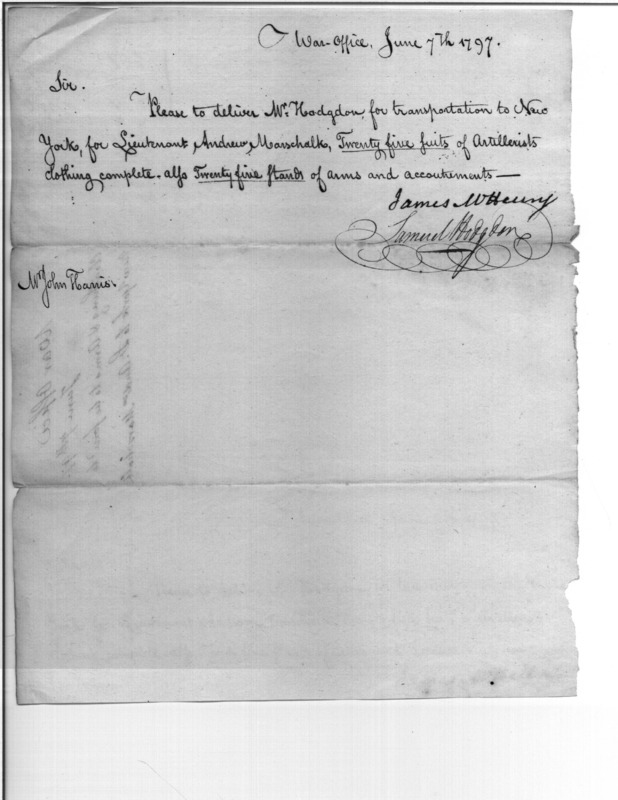 War-Office, June 7th 1797.
Sir.
Please to deliver Mr. Hodgdon, for transportation to New
York, for Lieutenant Andrew Marschalk, Twenty five suits of Artillerists
clothing complete. also Twenty five stands of arms and accoutrements—
James McHenry
Samuel Hodgdon
Mr. John Harris.